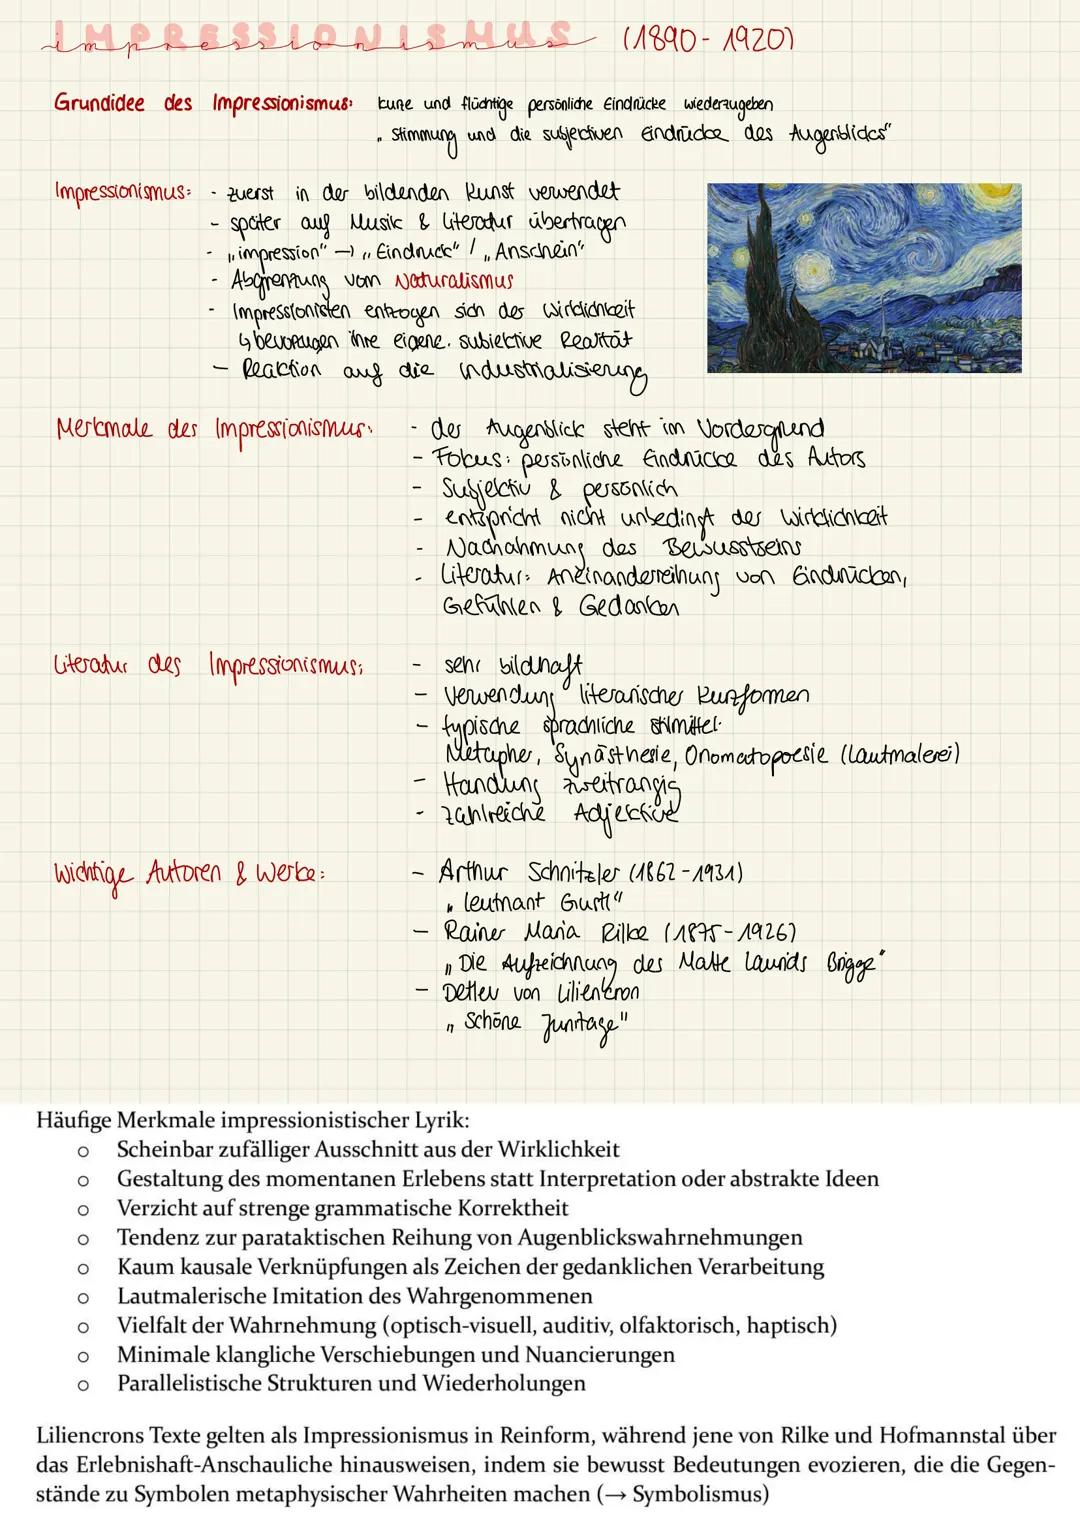 IMPRESSIONISMUS
impressionismus (1890-1920)
Grundidee des Impressionismus: kurze und flüchtige persönliche Eindrücke wiederzugeben
„Stimmung und die subjektiven Eindrücke des Augenblicks"
Impressionismus: - zuerst in der bildenden Kunst verwendet
- später auf Musik & Literatur übertragen
- „impression" → „Eindruck" / „Anschein"
- Abgrenzung vom Naturalismus
- Impressionisten entzogen sich der Wirklichkeit
↳ bevorzugen ihre eigene, subjektive Realität
- Reaktion auf die Industrialisierung
Merkmale des Impressionismus: - der Augenblick steht im Vordergrund
- Fokus: persönliche Eindrücke des Autors
- Subjektiv & persönlich
- entspricht nicht unbedingt der Wirklichkeit
- Nachahmung des Bewusstseins
- Literatur: Aneinanderreihung von Eindrücken,
Gefühlen & Gedanken
Literatur des Impressionismus: - sehr bildhaft
- Verwendung literarischer Kurzformen
- typische sprachliche Stilmittel:
Metapher, Synästhesie, Onomatopoesie (Lautmalerei)
- Handlung zweitrangig
- zahlreiche Adjektive
Wichtige Autoren & Werke: - Arthur Schnitzler (1862-1931)
„Leutnant Gustl"
- Rainer Maria Rilke (1875-1926)
„Die Aufzeichnung des Malte Laurids Brigge"
- Detlev von Liliencron
„Schöne Junitage"
Häufige Merkmale impressionistischer Lyrik:
o Scheinbar zufälliger Ausschnitt aus der Wirklichkeit
o Gestaltung des momentanen Erlebens statt Interpretation oder abstrakte Ideen
o Verzicht auf strenge grammatische Korrektheit
o Tendenz zur parataktischen Reihung von Augenblickswahrnehmungen
o Kaum kausale Verknüpfungen als Zeichen der gedanklichen Verarbeitung
o Lautmalerische Imitation des Wahrgenommenen
o Vielfalt der Wahrnehmung (optisch-visuell, auditiv, olfaktorisch, haptisch)
o Minimale klangliche Verschiebungen und Nuancierungen
o Parallelistische Strukturen und Wiederholungen
Liliencrons Texte gelten als Impressionismus in Reinform, während jene von Rilke und Hofmannstal über
das Erlebnishaft-Anschauliche hinausweisen, indem sie bewusst Bedeutungen evozieren, die die Gegen-
stände zu Symbolen metaphysischer Wahrheiten machen (→ Symbolismus)